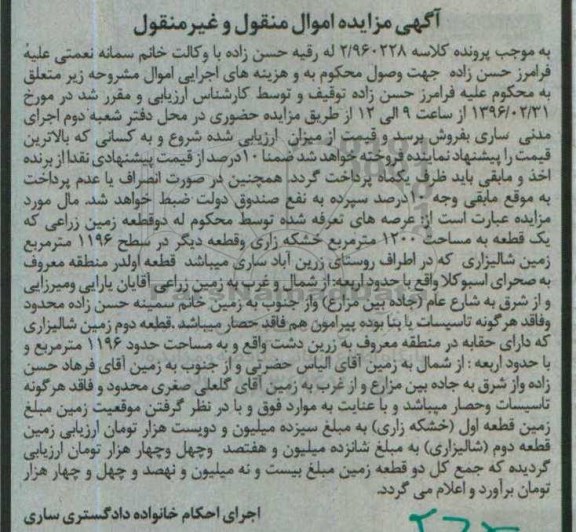 آگهی مزایده اموال منقول و غیرمنقول
به موجب پرونده کلاسه ۲/۹۶۰۲۲۸ له رقیه حسن زاده با وکالت خانم سمانه نعمتی علیه
فرامرز حسن زاده جهت وصول محکوم به و هزینه های اجرایی اموال مشروحه زیر متعلق
به محکوم علیه فرامرز حسن زاده توقیف و توسط کارشناس ارزیابی و مقرر شد در مورخ
۱۳۹۶/۰۲/۳۱ از ساعت ۹ الی ۱۲ از طریق مزایده حضوری در محل دفتر شعبه دوم اجرای
مدنی ساری بفروش برسد و قیمت از میزان ارزیابی شده شروع و به کسانی که بالاترین
قیمت را پیشنهاد نماینده فروخته خواهد شد ضمنا ۱۰درصد از قیمت پیشنهادی نقدا از برنده
اخذ و مابقی باید ظرف یکماه پرداخت گردد همچنین در صورت انصراف یا عدم پرداخت
به موقع مابقی وجه ۱۰درصد سپرده به نفع صندوق دولت ضبط خواهد شد. مال مورد
مزایده عبارت است از: عرصه های تعرفه شده توسط محکوم له دوقطعه زمین زراعی که
یک قطعه به مساحت ۱۲۰۰ مترمربع خشکه زاری وقطعه دیگر در سطح ۱۱۹۶ مترمربع
زمین شالیزاری که در اطراف روستای زرین آباد ساری میباشد قطعه اولدر منطقه معروف
به صحرای اسبوکلا واقع با حدود اربعه: از شمال و غرب به زمین زراعی آقایان یارایی ومیرزایی
و از شرق به شارع عام (جاده بین مزارع) واز جنوب به زمین خانم سمینه حسن زاده محدود
وفاقد هرگونه تاسیسات یا بنا بوده پیرامون هم فاقد حصار میباشد .قطعه دوم زمین شالیزاری
که دارای حقابه در منطقه معروف به زرین دشت واقع و به مساحت حدود ۱۱۹۶ مترمربع و
با حدود اربعه : از شمال به زمین آقای الیاس حضرتی و از جنوب به زمین آقای فرهاد حسن
زاده واز شرق به جاده بین مزارع و از غرب به زمین آقای گلعلی صغری محدود و فاقد هرگونه
تاسیسات وحصار میباشد و با عنایت به موارد فوق و با در نظر گرفتن موقعیت زمین مبلغ
زمین قطعه اول (خشکه زاری) به مبلغ سیزده میلیون و دویست هزار تومان ارزیابی زمین
قطعه دوم (شالیزاری) به مبلغ شانزده میلیون و هفتصد وچهل وچهار هزار تومان ارزیابی
گردیده که جمع کل دو قطعه زمین مبلغ بیست و نه میلیون و نهصد و چهل و چهار هزار
تومان برآورد و اعلام می گردد.
اجرای احکام خانواده دادگستری ساری